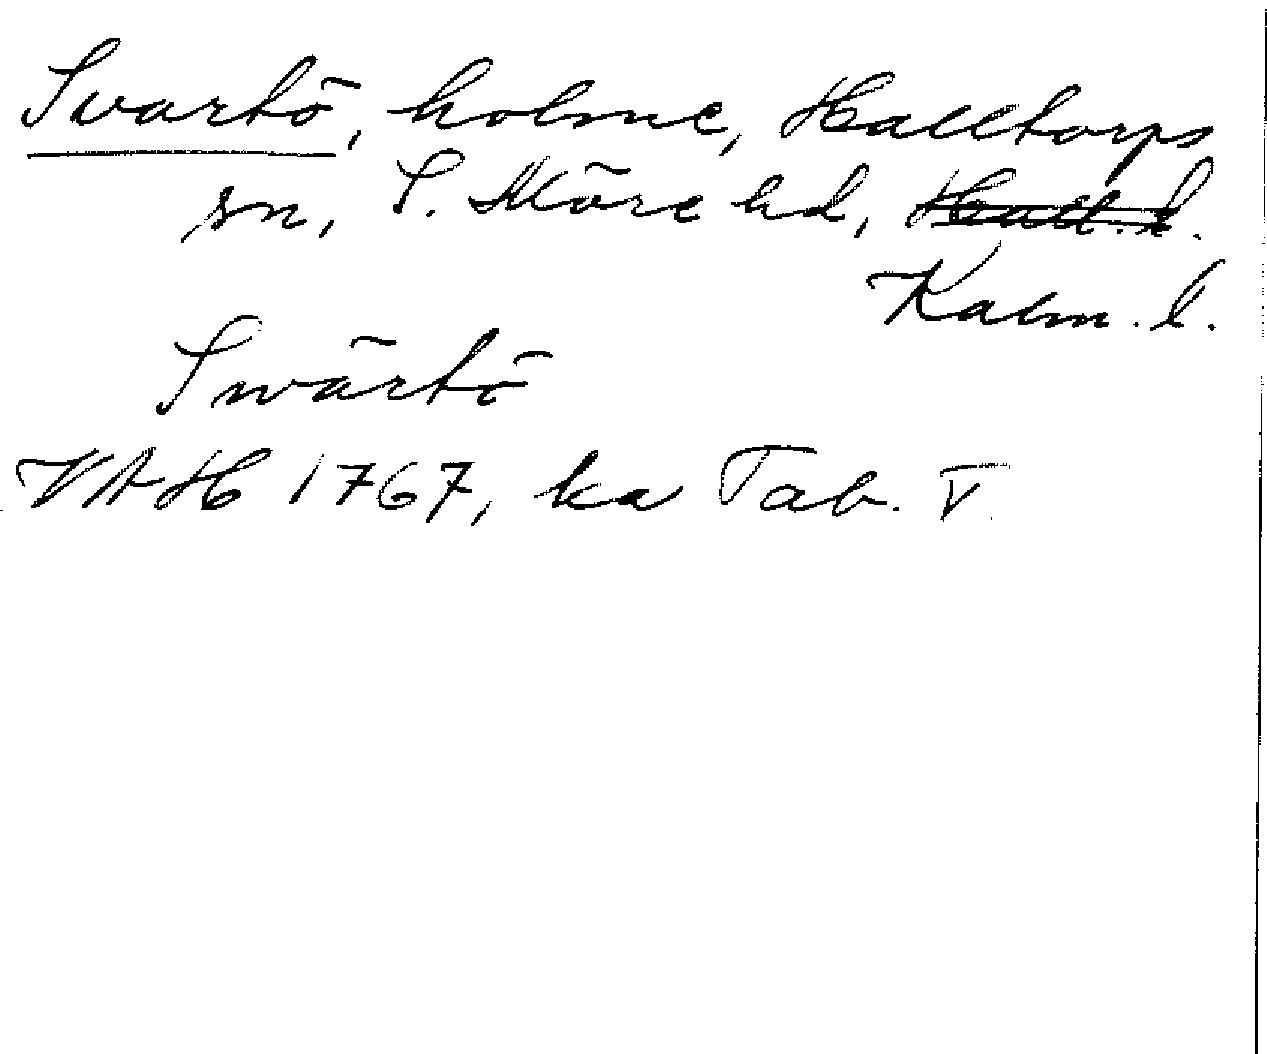 Svartö, holme, Halltorps
sn, S. Möre hd, Hall. l.
Kalm. l.
Swärtö
VAH 1767, ka Tab. V.